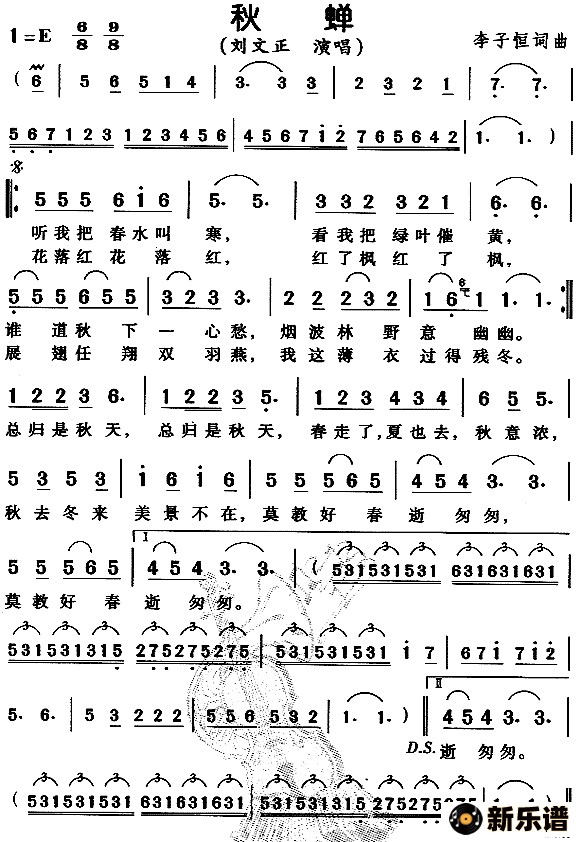 秋 蝉
1=E 6/8 9/8 (刘文正 演唱) 李子恒 词曲
( 6 | 5 6 5 1 4 | 3. 3 3 | 2 3 2 1 | 7. 7. |
5 6 7 1 2 3 1 2 3 4 5 6 | 4 5 6 7 1 2 7 6 5 6 4 2 | 1. 1. ) |
5 5 5 6 1 6 | 5. 5. | 3 3 3 3 2 1 | 6. 6. |
听我把 春水叫 寒, 看我把 绿叶催 黄,
花落红 花 落 红, 红了枫 红 了 枫,
5 5 5 6 5 5 | 3 2 3 3. | 2 2 2 2 2 | 1 6 1 1. :||
谁 道秋 下 一 心愁, 烟波林 野意 幽幽。
展 翅任 翔 双 羽燕, 我这薄 衣 过得残冬。
1 2 2 3 6. | 1 2 2 3 5. | 3 3 4 2 4 3 | 6 5 5. |
总归是秋天, 总归是秋天, 春走了,夏也去, 秋意浓,
5 3 5 3 | 1 6 1 6 | 5 5 5 6 5 | 4 5 4 3. 3. |
秋去冬来 美景不在, 莫教好 春 逝 匆匆,
1
5 5 5 6 5 | 4 5 4 3. 3. | ( 5 3 1 5 3 1 5 3 1 6 3 1 6 3 1 6 3 1 |
莫教好 春 逝 匆匆。
5 3 1 5 3 1 5 3 1 5 2 7 5 2 7 5 2 7 5 | 5 3 1 5 3 1 5 3 1 1 7 | 6 7 1 7 1 2 |
II
5. 6. | 5 5 5 6 5 3 2 | 1. 1. ) || 4 5 4 3. 3. |
D.S. 逝 匆匆。
( 5 3 1 5 3 1 5 3 1 6 3 1 6 3 1 6 3 1 | 5 3 1 5 3 1 5 3 1 5 2 7 5 2 7 5 2 7 5 | 1. 1. )
新乐谱